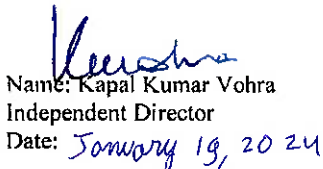 Name: Kapal Kumar Vohra
Independent Director
Date: January 19, 2024